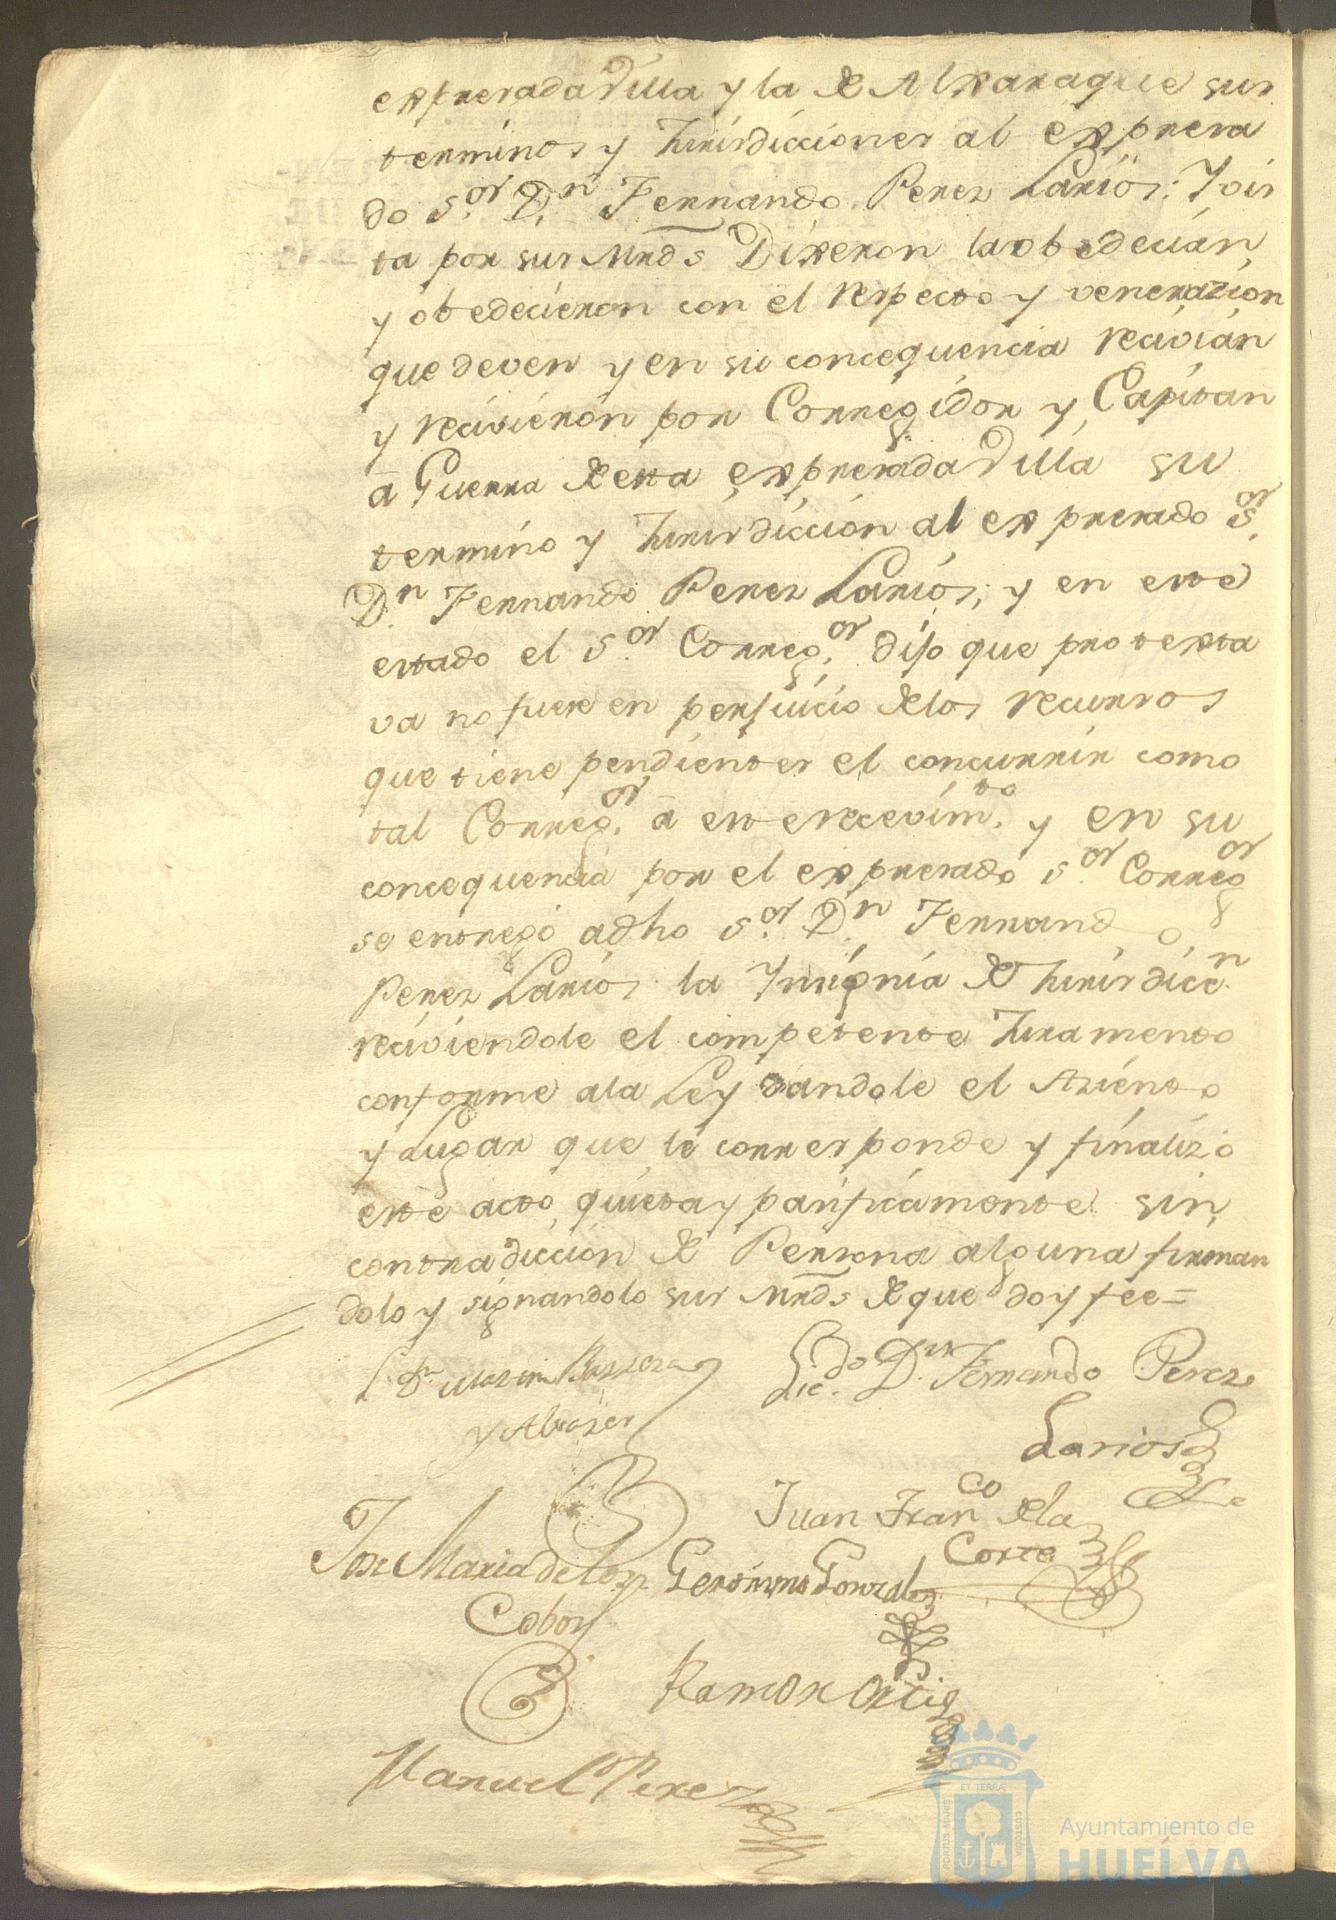 expresada Villa y la de Alxaraque sus
terminos y Jurisdicciones al expresa
do S.or D.n Fernando Perez Larios: Y vis
ta por sus Mrds Dixeron la obedecian,
y obedecieron con el respecto y venerazion
que deven y en su concequencia recivian
y recivieron por Corregidor y Capitan
a Guerra de esta expresada Villa su
termino y Jurisdiccion al expresado S.or
D.n Fernando Perez Larios; y en este
estado el S.or Correg.or dijo que protexta
va no fuere en perjuicio de los recursos
que tiene pendientes el concurrir como
tal Correg.or a este recevim.to y en su
concequencia por el expresado S.or Correg.or
se entregó a dho S.or D.n Fernando
Perez Larios la Ynsignia de Jurisdicc.n
reciviendole el competente Juramento
conforme a la Ley dandole el Asiento
y Lugar que le corresponde y finalizó
este acto quieta y pasificamente sin
contradiccion de Persona alguna firman
dolo y signandolo sus Mrds de que doy fee=
L. Dn Martin Barrera
y Alvarez
Lic.do D.n Fernando Perez
Larios
Juan Fran.co de la
Corte
Jose Maria de los
Cobos
Geronimo Gonzales
Ramon Ortiz
Manuel Perez
ET TERRÆ
PORTUS MARIS
CUSTODIA
Ayuntamiento de
HUELVA